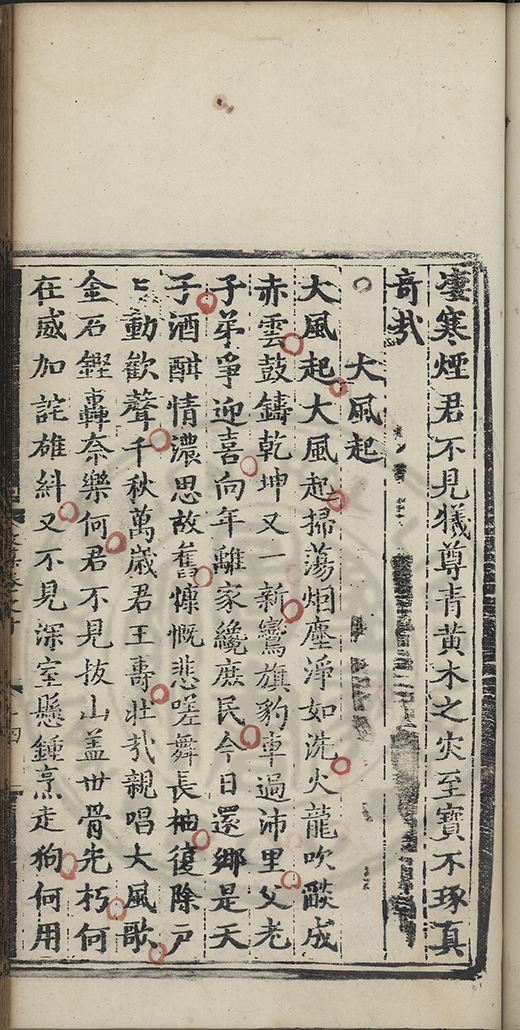 凄寒煙君不見犧尊青黃木之灾至寶不琢真
奇㢤
○　大風起
大風起大風起掃蕩烟塵淨如洗火龍吹燄成
赤雲鼓鑄乾坤又一新鸞旗豹車過沛里父老
子弟爭迎喜向年離家纔庶民今日還鄉是天
子酒酣情濃思故舊慷慨悲嗟舞長袖復除戶
〻動歡聲千秋萬歲君王壽壯㢤親唱大風歌
金石鏗轟奈樂何君不見拔山盖世骨先朽何
在威加詫雄糾又不見深室懸鍾烹走狗何用